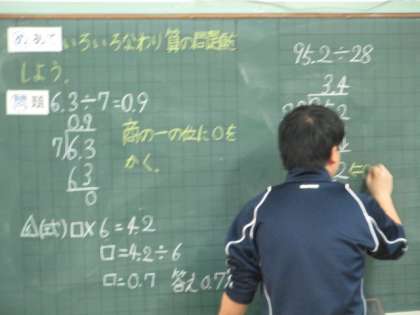 いろいろなわり算の問題を
しよう。
問題 6.3÷7=0.9
0.9
7)6.3
63
0
商の一の位に0を
かく。
(式)□×6=4.2
□=4.2÷6
□=0.7 答え0.7
95.2÷28
3.4